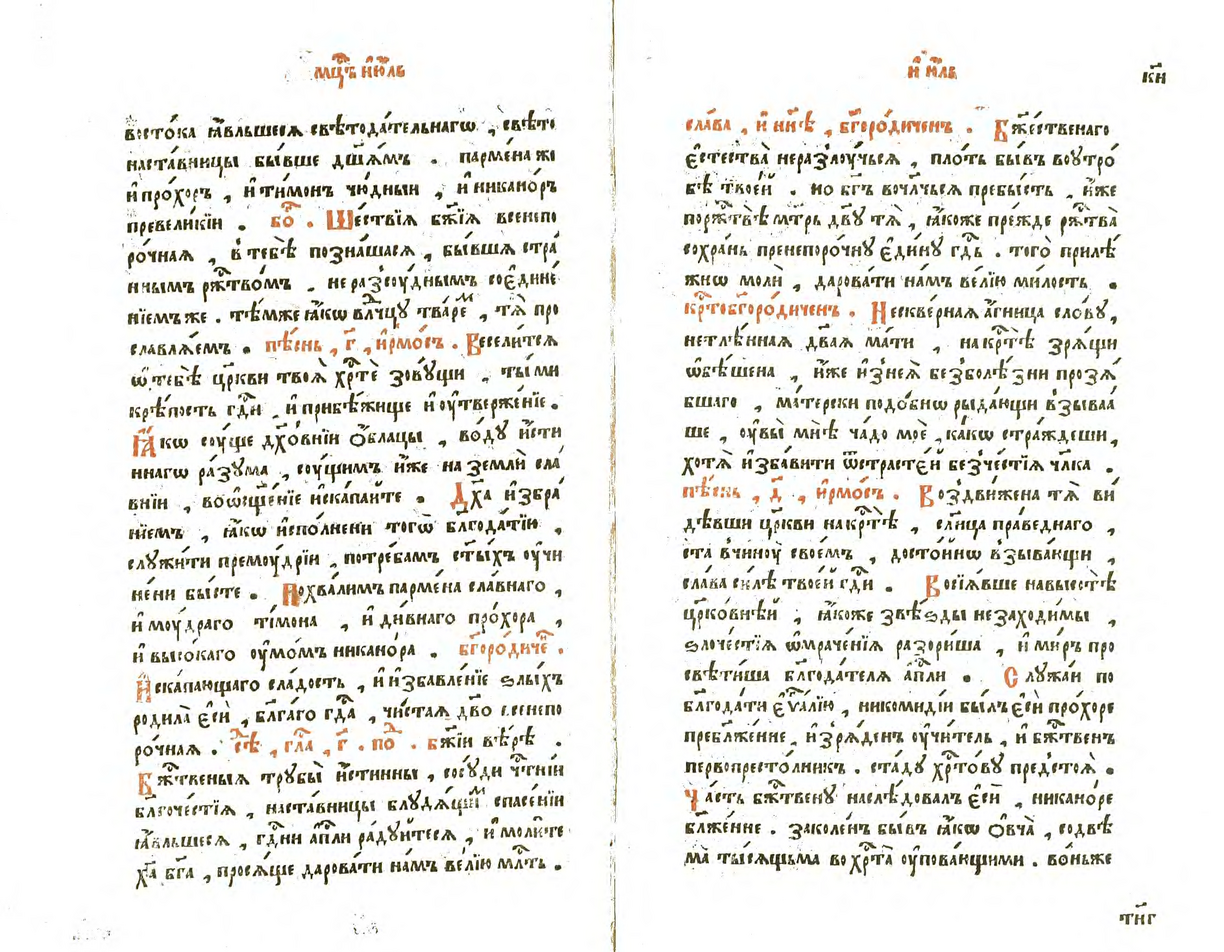 мцъ июль
востока ꙗвльшеся свѣтодательнагѡ , свѣто
наставницы бы́вше дш҃ꙗмъ . пармена же
и҆ про́хоръ , и҆ ти́монъ чю́дныи , и҆ никано́ръ
превели́кїи . бо҃ . Ше́ствїѧ бж҃їѧ всенепо
ро́чнаѧ , в̾ тебѣ̀ позна́шасѧ , бы́вшѧ стра́
ннымъ ржⷭ҇тво́мъ . неразсꙋ́днымъ сое҆дине́
нїемъ же . тѣ́мже ꙗ҆́кѡ влⷣчцꙋ тва́реⷨ , тѧ̀ про
славлѧ́емъ . пѣ́снь , г҃ , і҆рмо́съ . Весели́тсѧ
ѡ҆ тебѣ̀ цр҃кви твоѧ̀ хрⷭ҇тѐ зовꙋ́щи , ты̀ ми
крѣ́пость гдⷭ҇и , и҆ прибѣ́жище и҆ ᲂу҆твержє́нїе .
Ꙗ҆́кѡ сꙋ́ще дх҃о́внїи ѻ҆́блацы , во́дꙋ и҆́сти
ннагѡ ра́зꙋма , сꙋ́щимъ и҆́же на землѝ сла́
внїи , воѡ҆ще́нїе и҆скапа́йте . Дх҃а и҆збра́
нїемъ , ꙗ҆́кѡ и҆спо́лнени тогѡ̀ блг҃ода́тїю ,
слꙋжи́ти премꙋ́дрїи , потре́бамъ ст҃ы́хъ ᲂу҆чи
не́ни бы́сте . Похва́лимъ парме́на сла́внаго ,
и҆ мꙋ́драго ті́мона , и҆ ди́внаго про́хора ,
и҆ высо́каго ᲂу҆мо́мъ никано́ра . бг҃оро́диче .
И҆скапа́ющаго сла́дость , и҆ и҆збавле́нїе ѕлы́хъ
родила̀ є҆сѝ , бл҃га́го гдⷭ҇а , чи́стаѧ дв҃о всенепо
ро́чнаѧ . сѣⷣ , гла́ , г҃ . по́ⷣ . бж҃їи вѣ́рѣ .
Бжⷭ҇твеныѧ трꙋбы̀ и҆́стинны , сосꙋ́ди чтⷭ҇нїи
бл҃гоче́стїѧ , наста́вницы блꙋдѧ́щиⷨ спасе́нїи
ꙗ҆́вльшесѧ , гдⷭ҇ни а҆пⷭ҇ли ра́дꙋитесѧ , и҆ моли́те
хрⷭ҇а̀ бг҃а , просѧ́ще дарова́ти на́мъ ве́лїю млⷭ҇ть .
и҆ ю҆́ль
к҃и
сла́ва , и҆ ны́нѣ , бг҃оро́диченъ . Бж҃е́ственаго
є҆стества̀ неразлꙋ́чьсѧ , пло́ть бы́въ воᲂутро́
бѣ твое́й . но бг҃ъ вочл҃чьсѧ пребы́сть , и҆́же
поржⷭ҇твѣ̀ мт҃рь дв҃ꙋ тѧ̀ , ꙗ҆́коже пре́жде ржⷭ҇тва̀
сохра́нь пренепоро́чнꙋ є҆ди́нꙋ гдⷭ҇ь . того̀ прилѣ́
жнѡ молѝ , дарова́ти на́мъ ве́лїю ми́лость .
крⷭ҇тобг҃оро́диченъ . Нескве́рнаѧ а҆́гница сло́вꙋ ,
нетлѣ́ннаѧ дв҃аѧ ма́ти , на крⷭ҇тѣ̀ зрѧ́щи
ѡ҆бѣ́шена , и҆́же и҆з̾неѧ̀ безболѣ́зни прозѧ́
бшаго , ма́терски подо́бнѡ рыда́ющи взыва́а
ше , ᲂу҆вы̀ мнѣ̀ ча́до моѐ , ка́кѡ стра́ждеши ,
хотѧ̀ и҆зба́вити ѿстрасте́й безче́стїѧ чл҃ка .
пѣ́снь , д҃ , і҆рмо́съ . Воздви́жена тѧ̀ ви́
дѣвши цр҃кви на крⷭ҇тѣ̀ , сл҃нца пра́веднаго ,
ста̀ в̾чинꙋ̀ свое́мъ , досто́йнѡ взыва́ющи ,
сла́ва си́лѣ твое́й гдⷭ҇и . Восїѧ́вше на высотѣ̀
цр҃ко́внѣй , ꙗ҆́коже ѕвѣ́зды незаходи́мы ,
ѕлоче́стїѧ ѡ҆мраче́нїѧ разори́ша , и҆ ми́ръ про
свѣти́ша бл҃года́телѧ а҆пⷭ҇ли . Слꙋжа́й по
бл҃года́ти є҆ѵⷢ҇а́лїю , никомиді́и бы́лъ є҆сѝ про́хоре
пребл҃же́нне , и҆зрѧ́денъ ᲂу҆чи́тель , и҆ бжⷭ҇твенъ
первопресто́лникъ . ста́дꙋ хрⷭ҇то́вꙋ предстоѧ̀ .
Ча́сть бжⷭ҇твенꙋ наслѣ́довалъ є҆сѝ , никано́ре
бл҃же́нне . закопе́нъ бы́въ ꙗ҆́кѡ ѻ҆вча̀ , содвѣ́
ма ты́сѧщьма во хрⷭ҇та̀ ᲂу҆пова́ющими . во́ньже
тн҃г